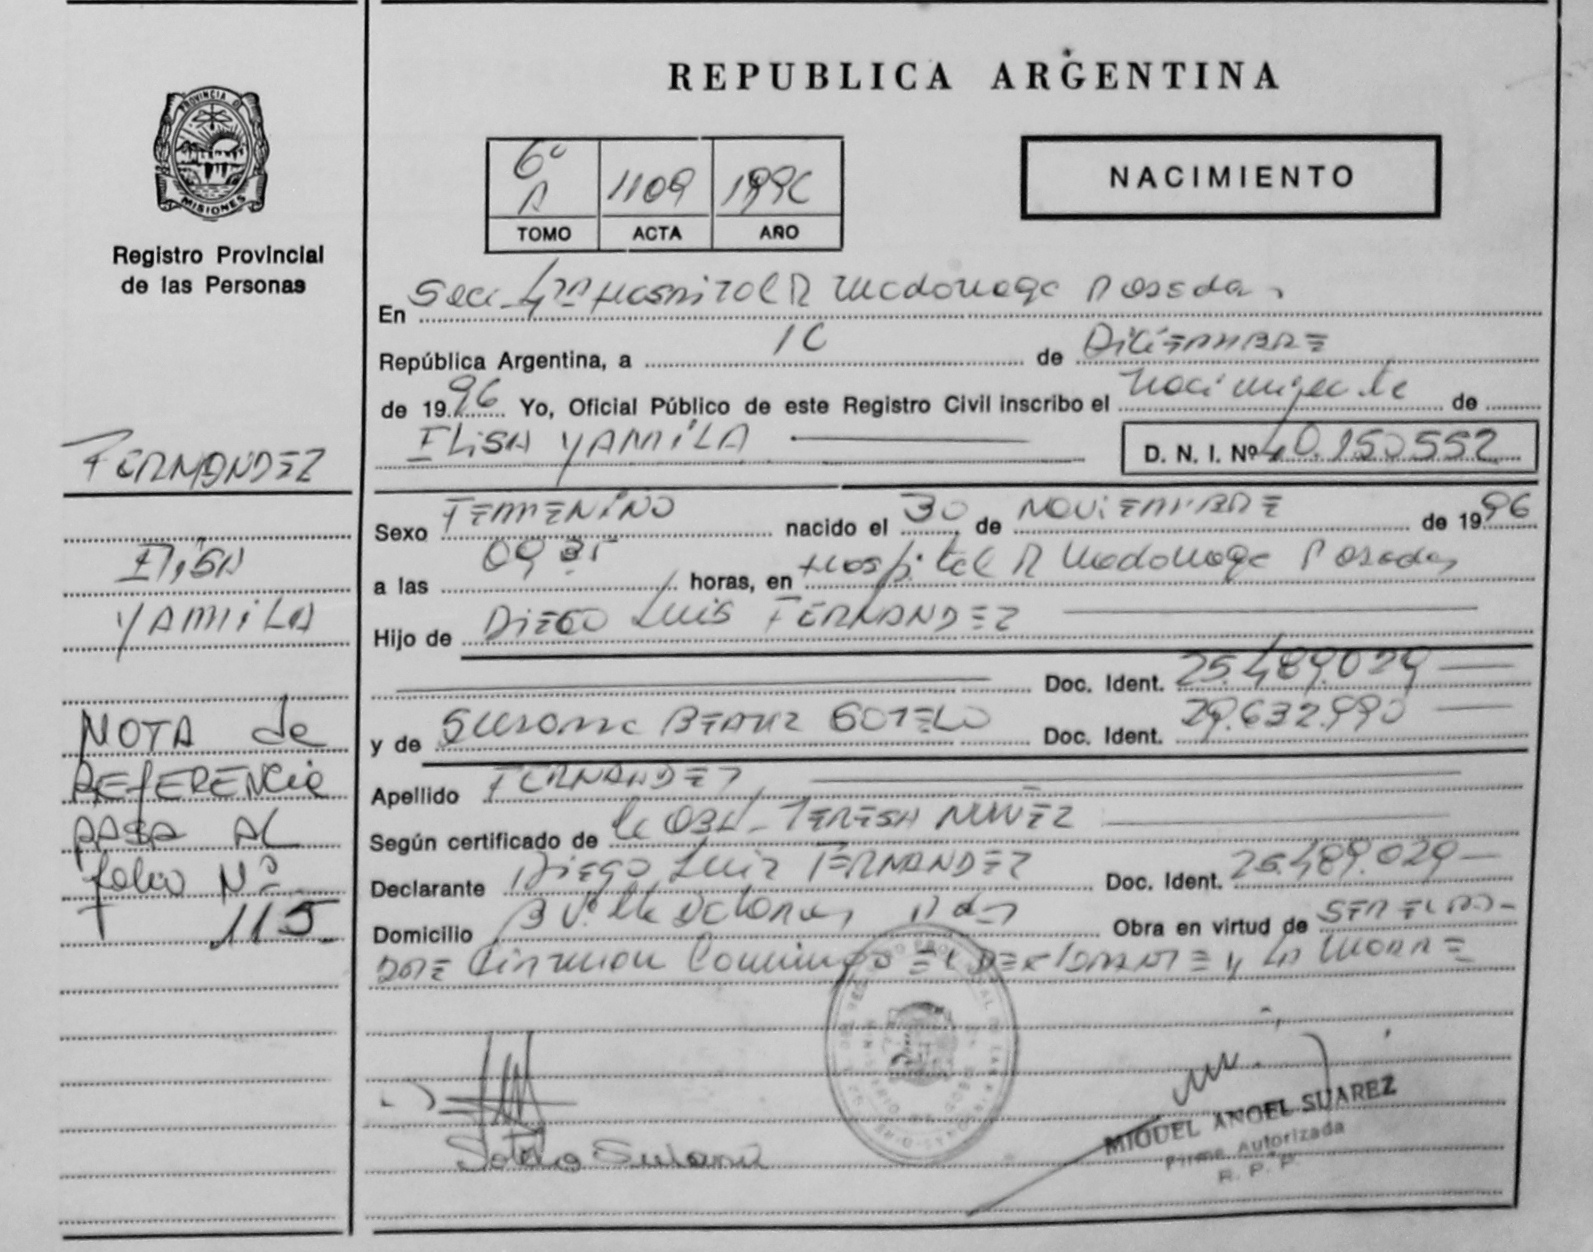 REPUBLICA ARGENTINA
PROVINCIA DE
MISIONES
Registro Provincial
de las Personas
6º
A 1109 1996
TOMO ACTA AÑO
NACIMIENTO
En Secc 4ta Hospital R Madariaga Posadas
República Argentina, a 10 de DICIEMBRE
de 1996 Yo, Oficial Público de este Registro Civil inscribo el nacimiento de
ELISA YAMILA D. N. I. Nº 40.150552
FERNANDEZ
ELISA
YAMILA
Sexo FEMENINO nacido el 30 de NOVIEMBRE de 1996
a las 09 horas, en Hospital R Madariaga Posadas
Hijo de DIEGO LUIS FERNANDEZ
Doc. Ident. 25.489.029
y de SUSANA BEATRIZ SOTELO Doc. Ident. 29.632.990
Apellido FERNANDEZ
Según certificado de la OBST. TERESA NUÑEZ
Declarante DIEGO LUIS FERNANDEZ Doc. Ident. 25.489.029
Domicilio Bº Villa Pdas Obra en virtud de SER EL PA-
DRE Firman Conmigo EL DECLARANTE y LA MADRE
NOTA de
REFERENCIA
PASA AL
folio Nº
115
Sotelo Susana
MIGUEL ANGEL SUAREZ
Firma Autorizada
R. P. P.